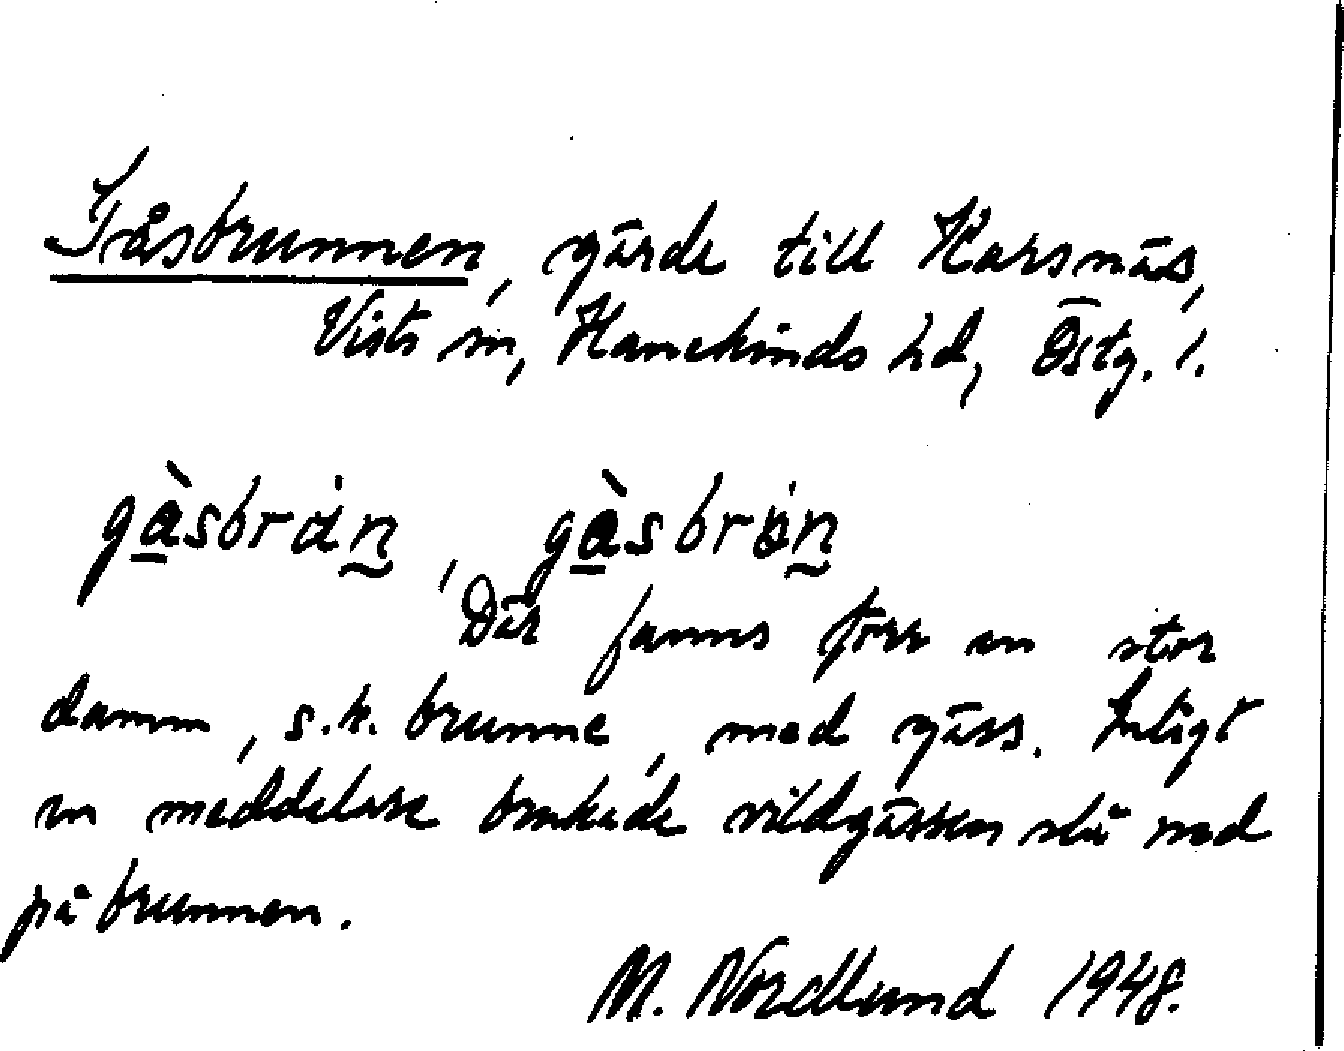 Gåsbrunnen, gärde till Karsnäs,
Vists sn, Hanekinds hd, Östg. l.
gàsbrȧn, gàsbrön
Där fanns förr en stor
damm, s.k. brunne, med gäss. Enligt
en meddelare brukade vildgässen slå ned
på brunnen.
M. Nordlund 1948.